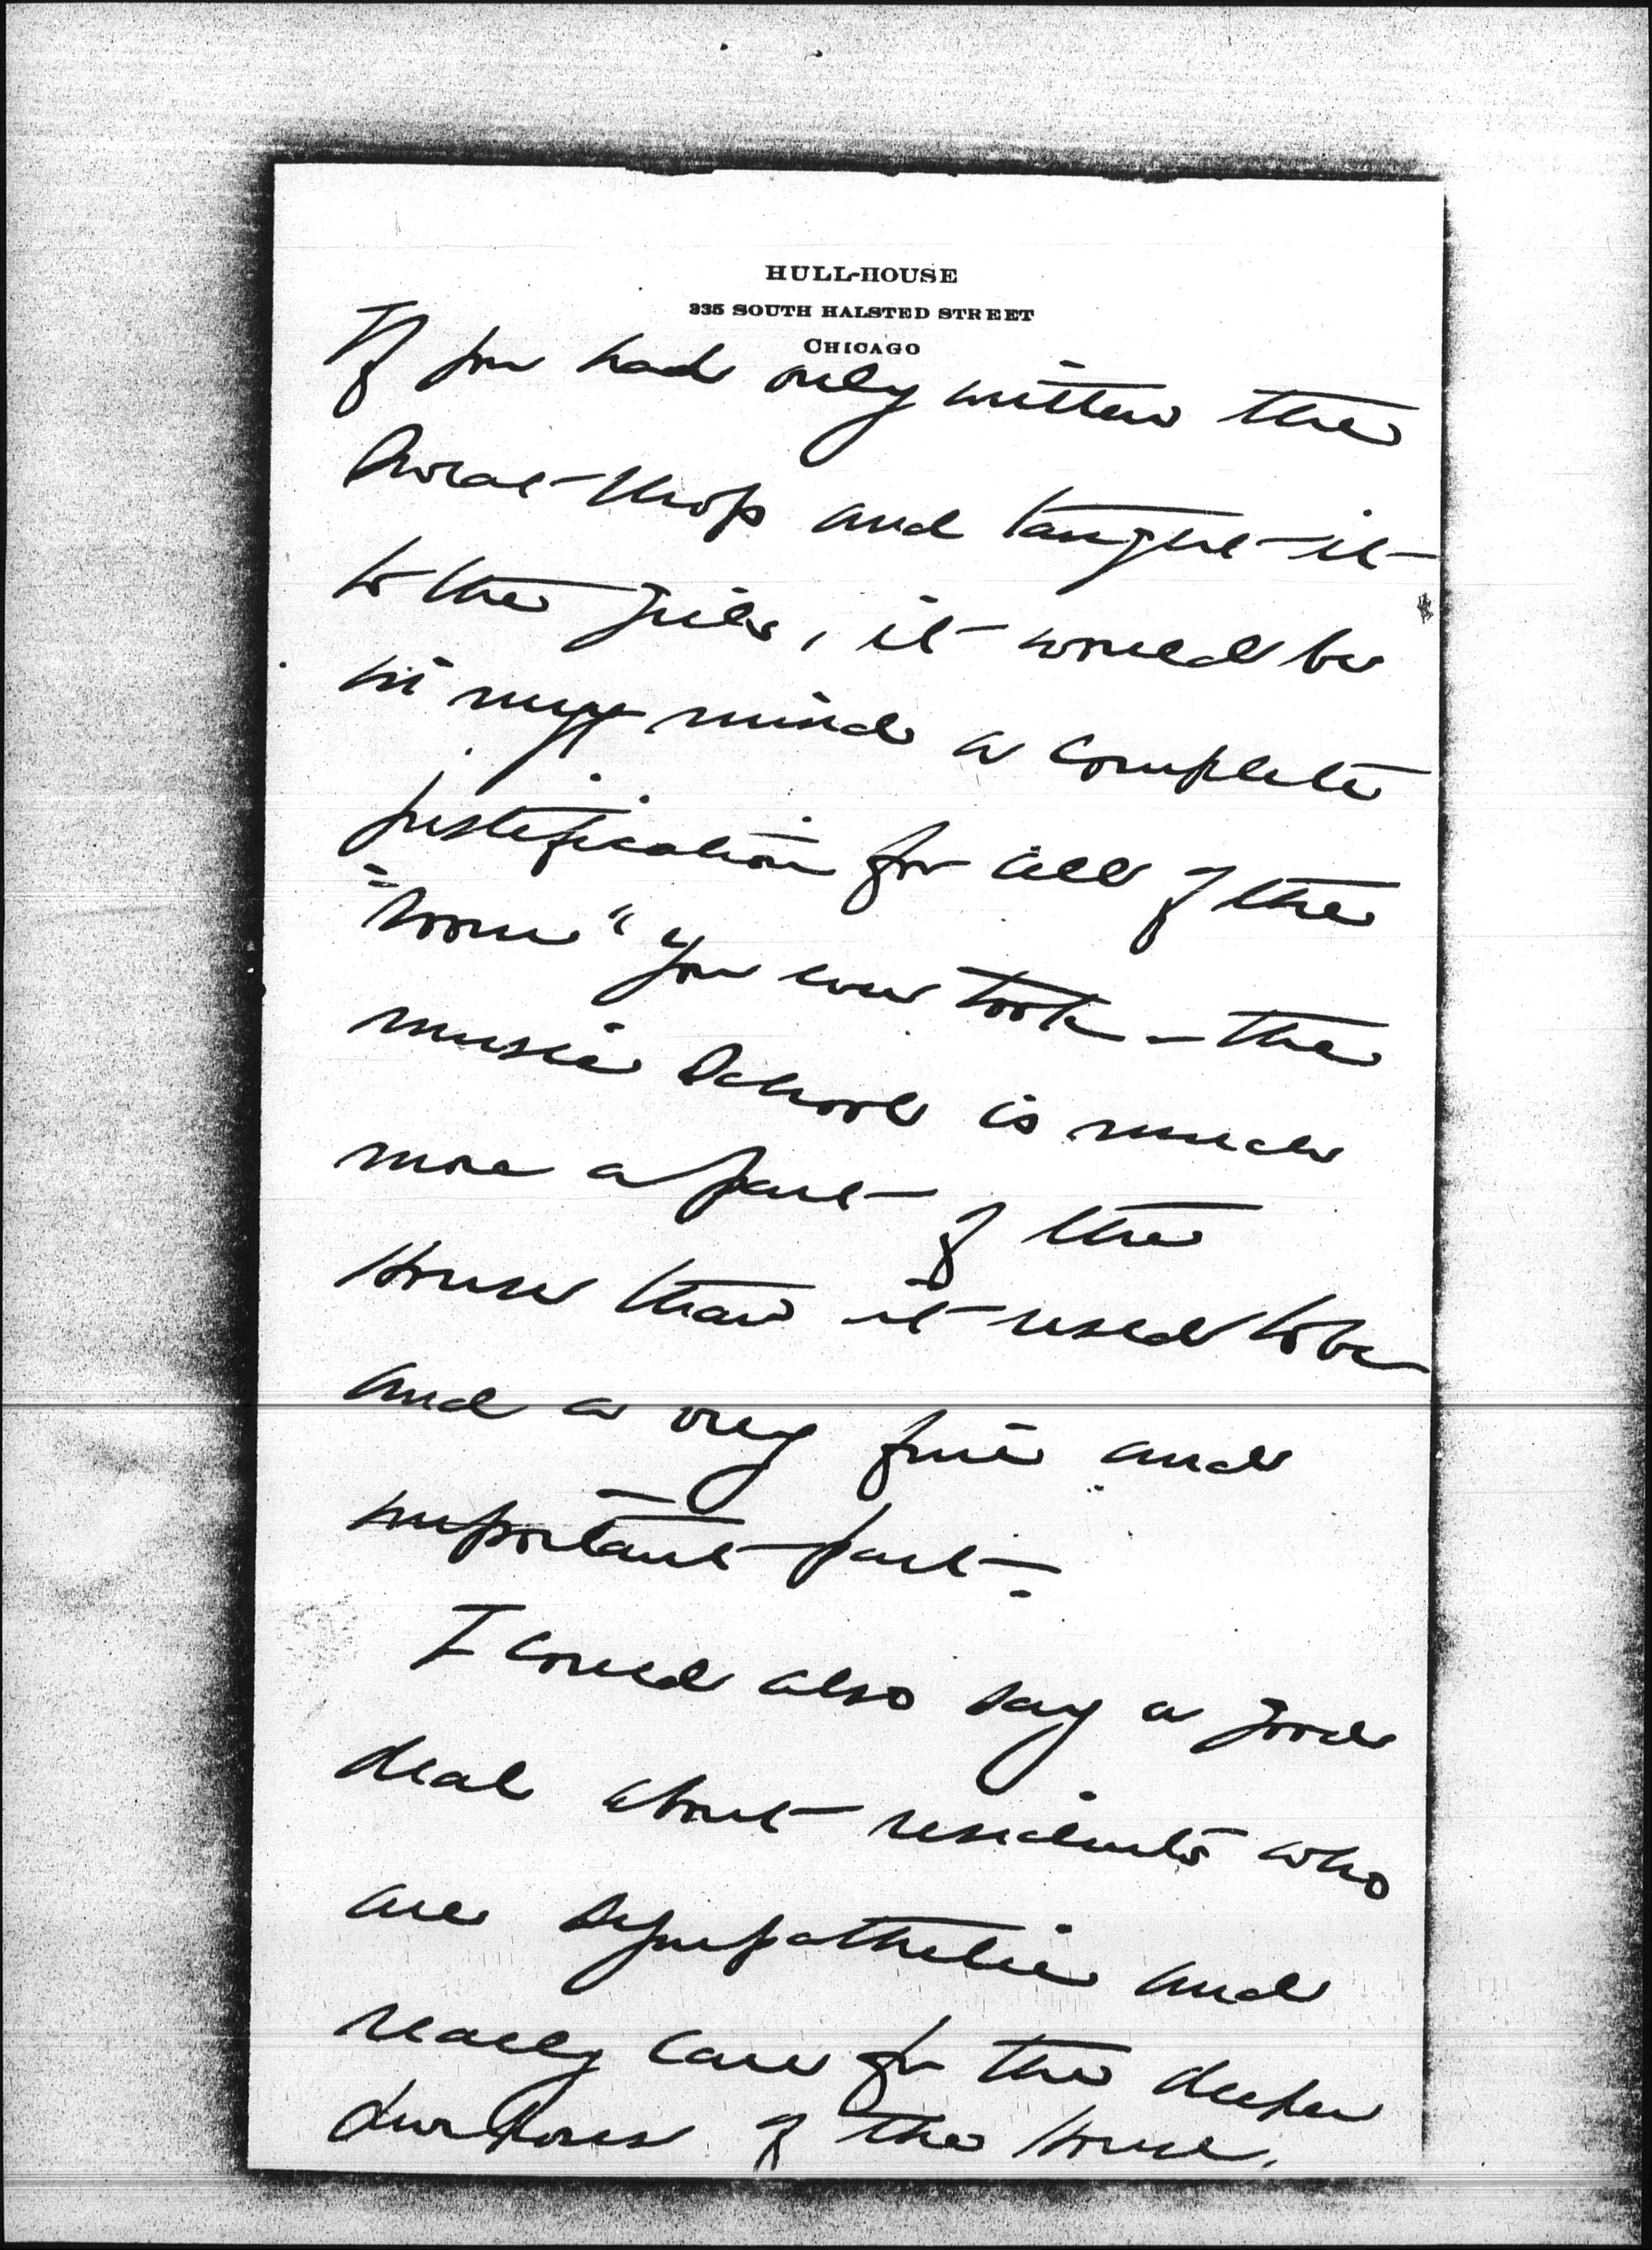 HULL-HOUSE
335 SOUTH HALSTED STREET
CHICAGO
If you had only written the
Sweat Shop and taught it
to the girls, it would be
in my mind a complete
justification for all of the
"room" you ever took - the
music School is much
more a part of the
House than it used to be
and a very fine and
important part.
I could also say a good
deal about residents who
are sympathetic and
really care for the deeper
purposes of the House.